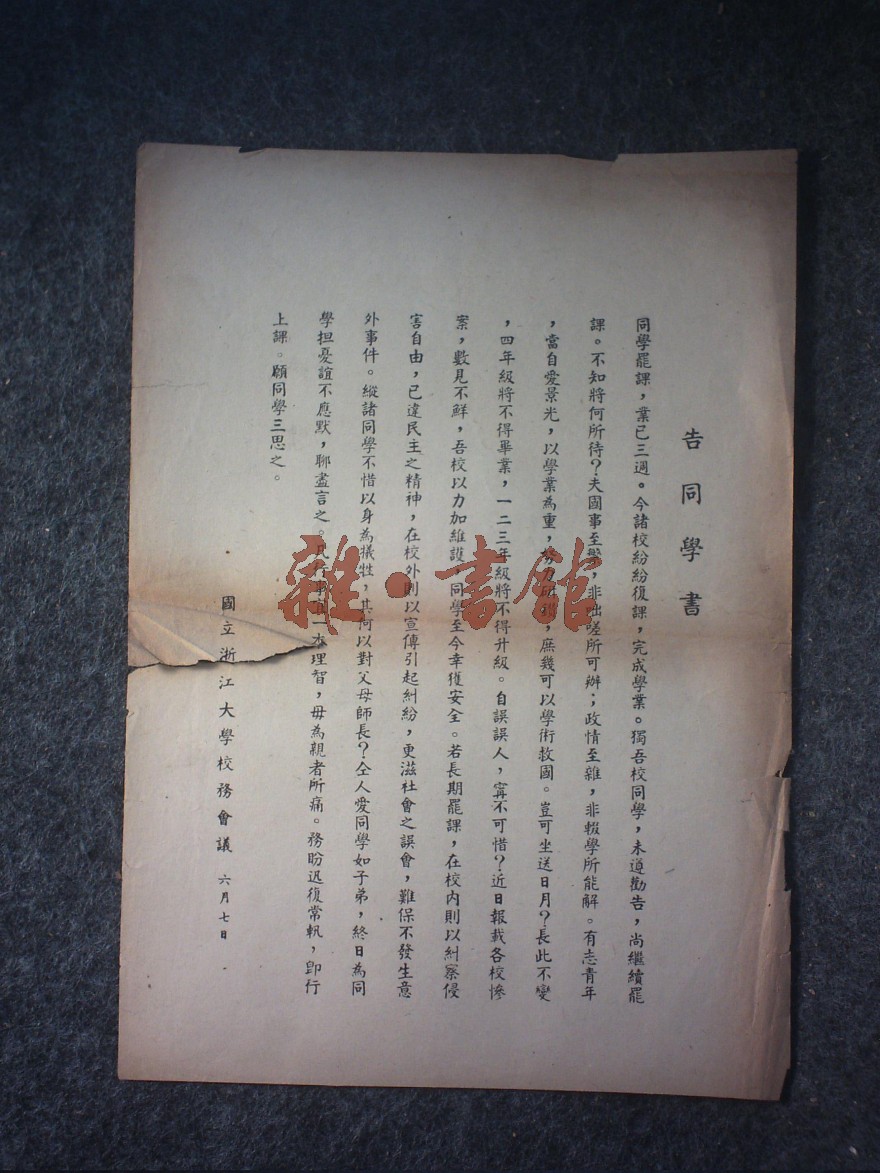 告同學書
同學罷課，業已三週。今諸校紛紛復課，完成學業。獨吾校同學，未遵勸告，尚繼續罷
課。不知將何所待？夫國事至艱，非咄嗟所可辦；政情至雜，非輟學所能解。有志青年
，當自愛景光，以學業為重，努力研鑽，庶幾可以學術救國。豈可坐送日月？長此不變
，四年級將不得畢業，一二三年級將不得升級。自誤誤人，寗不可惜？近日報載各校慘
案，數見不鮮，吾校以力加維護，同學至今幸獲安全。若長期罷課，在校內則以糾察侵
害自由，已違民主之精神，在校外則以宣傳引起糾紛，更滋社會之誤會，難保不發生意
外事件。縱諸同學不惜以身為犧牲，其何以對父母師長？仝人愛同學如子弟，終日為同
學担憂誼不應默，聊盡言之。凡一本理智，毋為親者所痛。務盼迅復常軌，卽行
上課。願同學三思之。
國立浙江大學校務會議 六月七日
雜·書館